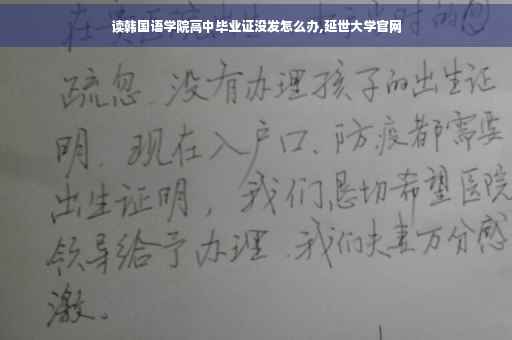 读韩国语学院高中毕业证没发怎么办,延世大学官网
疏忽.没有办理孩子的出生证
明.现在入户口、防疫都需要
出生证明,我们恳切希望医院
领导给予办理.我们夫妻万分感
激。